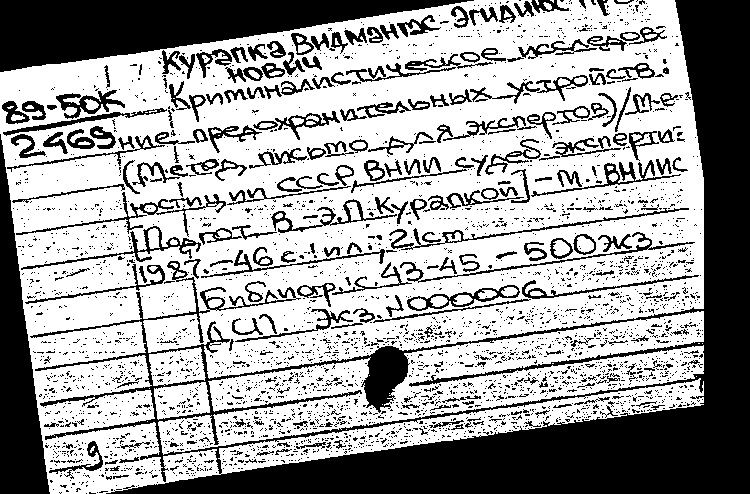 Курапка, Видмантас-Эгидиюс Пра-
нович
89-50К
2469
Криминалистическое исследова-
ние предохранительных устройств:
(Метод. письмо для экспертов)/М-в
юстиции СССР, ВНИИ судеб. эксперти-
[Подгот. В.-Э.П.Курапкой].-М.:ВНИИС
1987.-46 с.:ил.;21см.
Библиогр.:с. 43-45.-500экз.
ДСП. Экз.N000006.
9